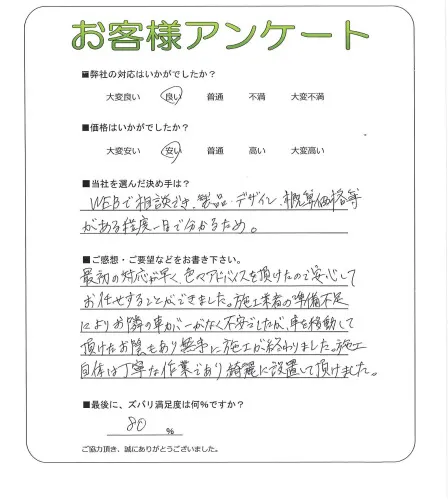 お客様アンケート
■弊社の対応はいかがでしたか?
大変良い 良い 普通 不満 大変不満
■価格はいかがでしたか?
大変安い 安い 普通 高い 大変高い
■当社を選んだ決め手は?
WEBで相談でき、製品・デザイン、概算価格等
がある程度一目で分かるため。
■ご感想・ご要望などをお書き下さい。
最初の対応が早く、色々アドバイスを頂けたので安心して
お任せすることができました。施工業者の準備不足
によりお隣の車がバーがなく不安でしたが、車を移動して
頂けたお陰もあり無事に施工が終わりました。施工
自体は丁寧な作業であり綺麗に設置して頂けました。
■最後に、ズバリ満足度は何%ですか?
80 %
ご協力頂き、誠にありがとうございました。